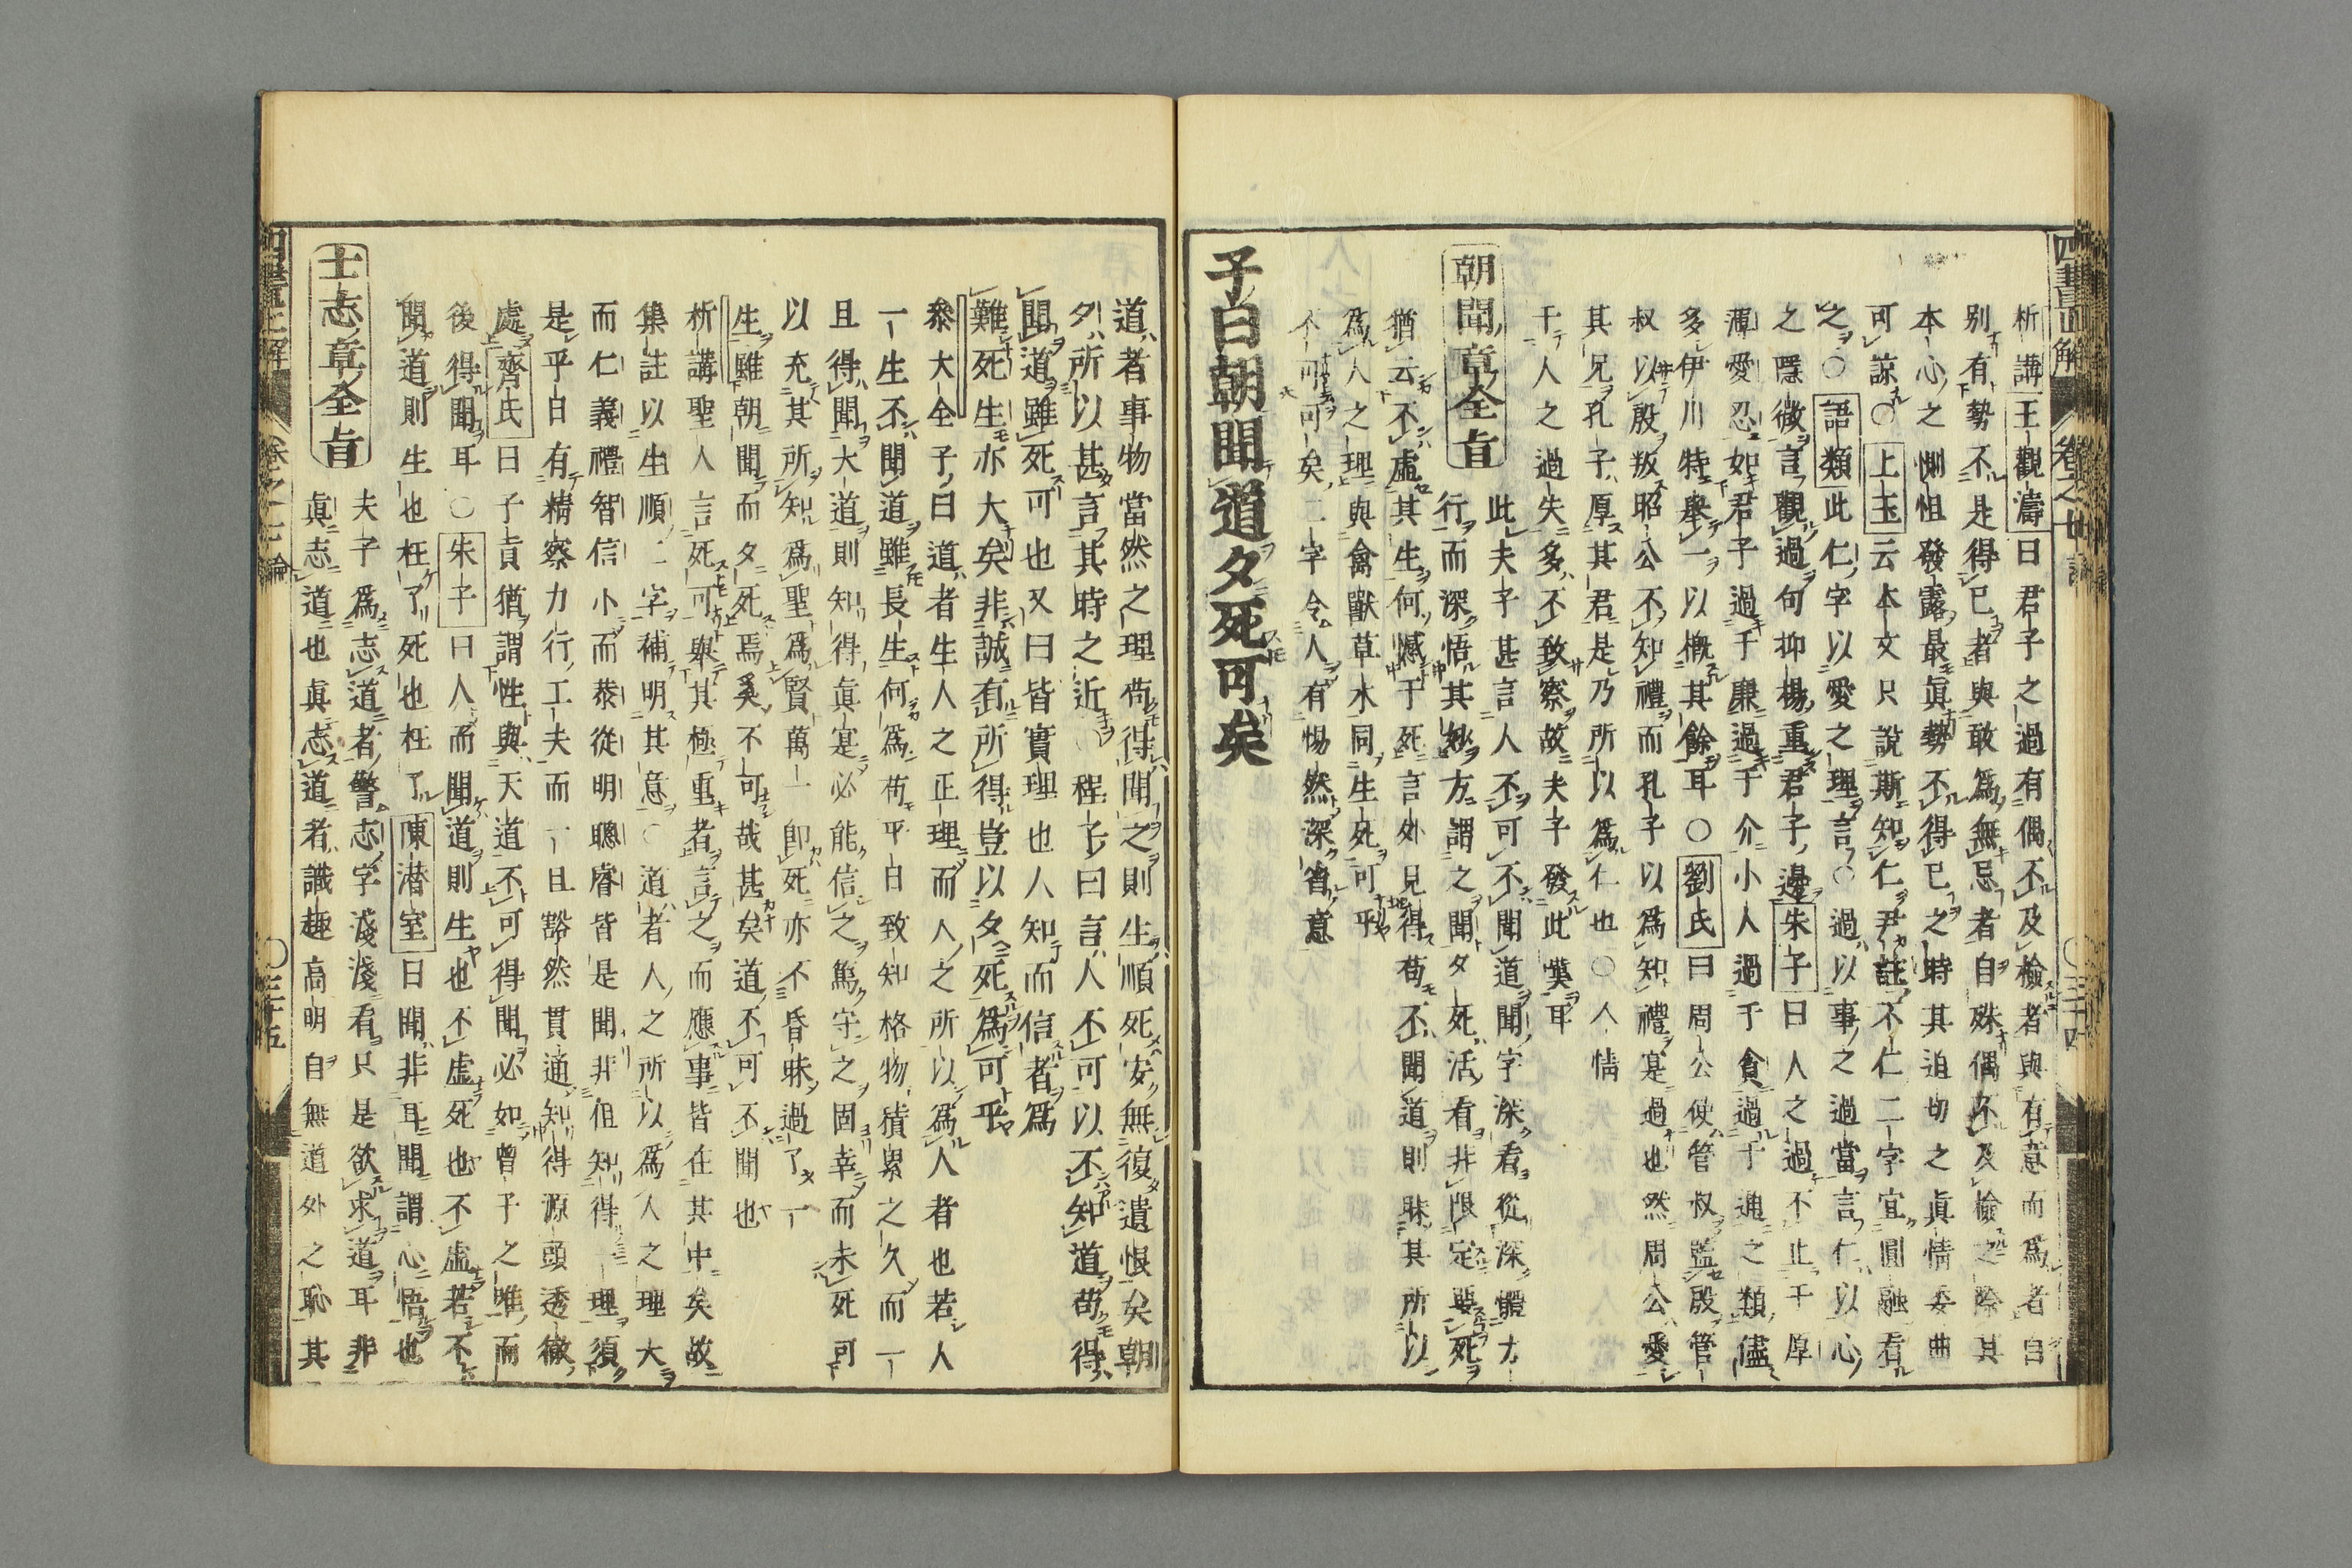 四書正解
卷之七
析講王觀濤曰君子之過有偶不及檢者與有意而爲者自
别有勢不是得已者與敢爲無忌者自殊偶不及檢之際其
本心之惻怛發露最眞勢不得已之時其迫切之眞情委曲
可諒○上玉云本文只說斯知仁尹註不仁二字宜圓融看
之○語類此仁字以愛之理言○過以事之過當言仁以心
之隱微言觀過句抑揚重君子邊朱子曰人之過不止于厚
薄愛忍如君子過于廉過于介小人過于貪過于通之類儘
多伊川特舉一以槪其餘耳○劉氏曰周公使管叔監殷管
叔以殷叛昭公不知禮而孔子以爲知禮寔過也然周公愛
其兄孔子厚其君是乃所以爲仁也○人情
于人之過失多不致察故夫子發此嘆耳
朝聞章全旨
此夫子甚言人不可不聞道聞字深看從深體力
行而深悟其妙方謂之聞夕死活看非限定要死
猶云不虛其生何憾于死言外見得苟不聞道則昧其所以
爲人之理與禽獸草木同生死可乎
不可可矣二字令人有惕然深省意
子曰朝聞道夕死可矣
道者事物當然之理苟得聞之則生順死安無復遺恨矣朝
夕所以甚言其時之近○程子曰言人不可以不知道苟得
聞道雖死可也又曰皆實理也人知而信者爲
難死生亦大矣非誠有所得豈以夕死爲可乎
叅大全子曰道者生人之正理而人之所以爲人者也若人
一生不聞道雖長生何爲苟平日致知格物積累之久而一
且得聞大道則知得眞寔必能信之篤守之固幸而未死可
以充其所知爲聖爲賢萬一卽死亦不昏昧過了一
生雖朝聞而夕死焉奚不可哉甚矣道不可不聞也
析講聖人言死可與其極重者言之而應事皆在其中矣故
集註以生順二字補明其意○道者人之所以爲人之理大
而仁義禮智信小而恭從明聰睿皆是聞非但知得一理須
是乎日有精察力行工夫而一旦豁然貫通知得源頭透徹
處齊氏曰子貢猶謂性與天道不可得聞必如曾子之唯而
後得聞耳○朱子曰人而聞道則生也不虛死也不虛若不
聞道則生也枉了死也枉了陳潜室曰聞非耳聞謂心悟也
士志章全旨
夫子爲志道者警志字淺淺看只是欲求道耳非
眞志道也眞志道者識趣高明自無道外之恥其
四書正解